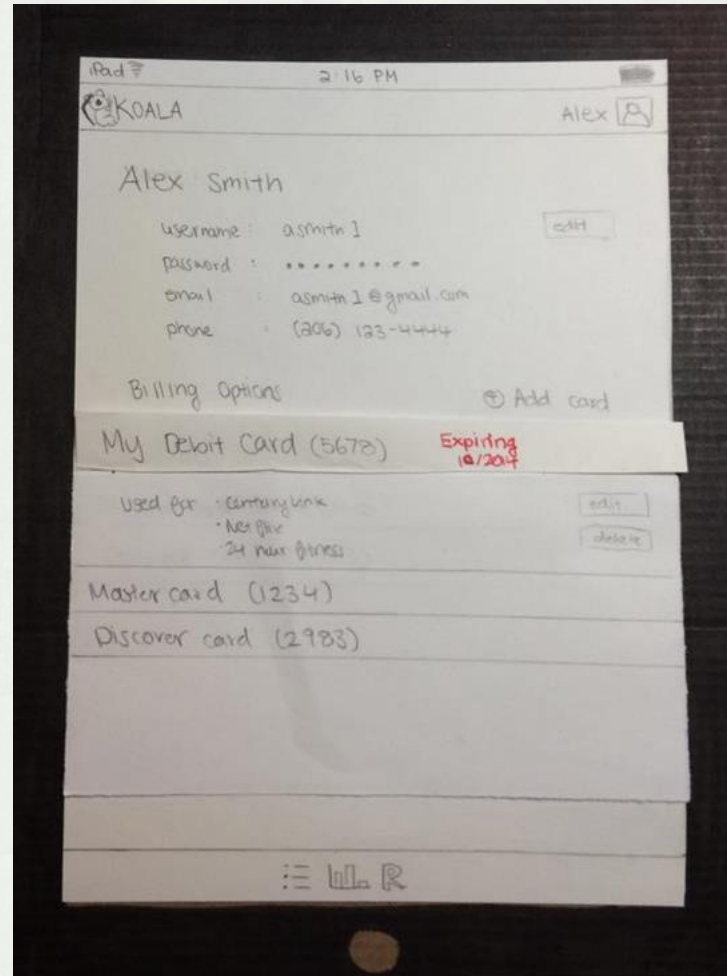 iPad 2:16 PM
KOALA Alex
Alex Smith
username : asmith1 edit
password : •••••••••
email : asmith1@gmail.com
phone : (206) 123-4444
Billing Options + Add card
My Debit Card (5678) Expiring
10/2014
Used for • CenturyLink edit
• Netflix delete
• 24 hour fitness
Mastercard (1234)
Discover card (2983)
R